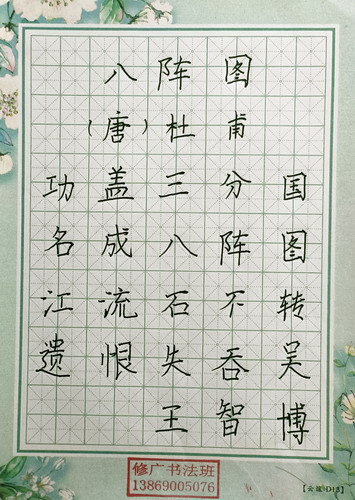 八阵图
（唐）杜甫
功盖三分国
名成八阵图
江流石不转
遗恨失吞吴
王智博
修广书法班
13869005076